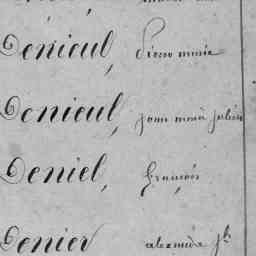 Dénieul, Pierre marie
Denieul, jean marie julien
Deniel, françois
Denier alexandre jh